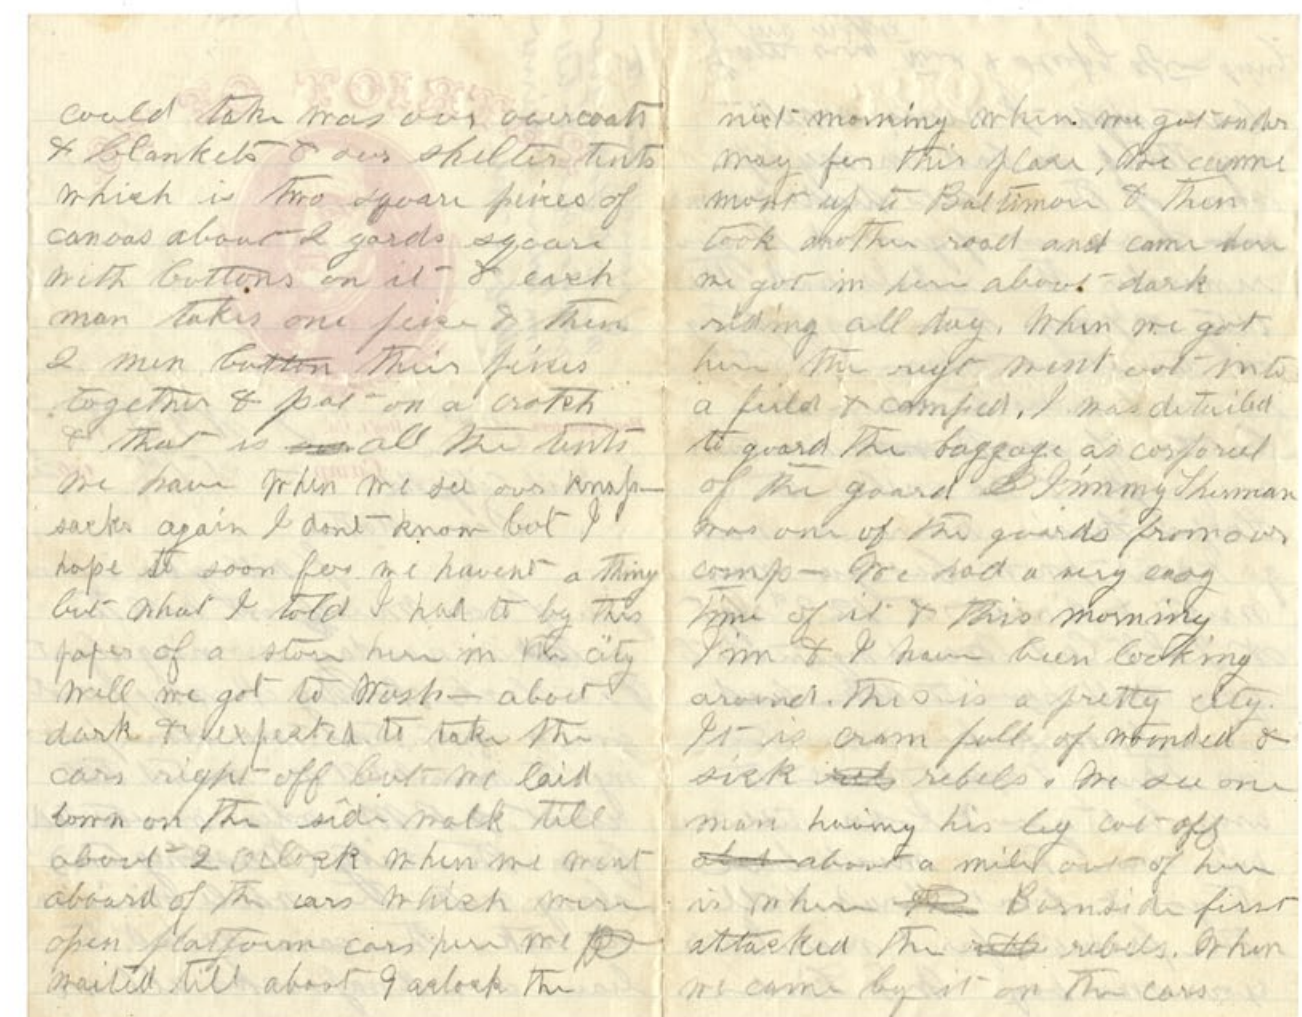 could take was our overcoats
& blankets & our shelter tents
which is two square peices of
canvas about 2 yards square
with buttons on it & each
man takes one peice & then
2 men button their peices
together & put on a crotch
& that is all the tents
We have When we see our knap-
sacks again I dont know but I
hope it soon for we havent a thing
but what I told I had to by this
paper of a store here in the city
Well we got to Wash— about
dark & expected to take the
cars right off but we laid
down on the side walk till
about 2 oclock when we went
aboard of the cars which were
open platform cars here we
waited till about 9 oclock the
next morning when we got under
way for this place, We came
most up to Baltimore & then
took another road and came here
we got in here about dark
riding all day. When we got
here the regt went out into
a field & camped. I was detailed
to guard the baggage as corporel
of the guard & Jimmy Sherman
was one of the guards from our
comp— We had a very easy
time of it & this morning
Jim & I have been looking
around. this is a pretty city.
It is cram full of wounded &
sick rebels. We see one
man having his leg cut off
about a mile out of here
is where Burnside first
attacked the rebels. When
we came by it on the cars